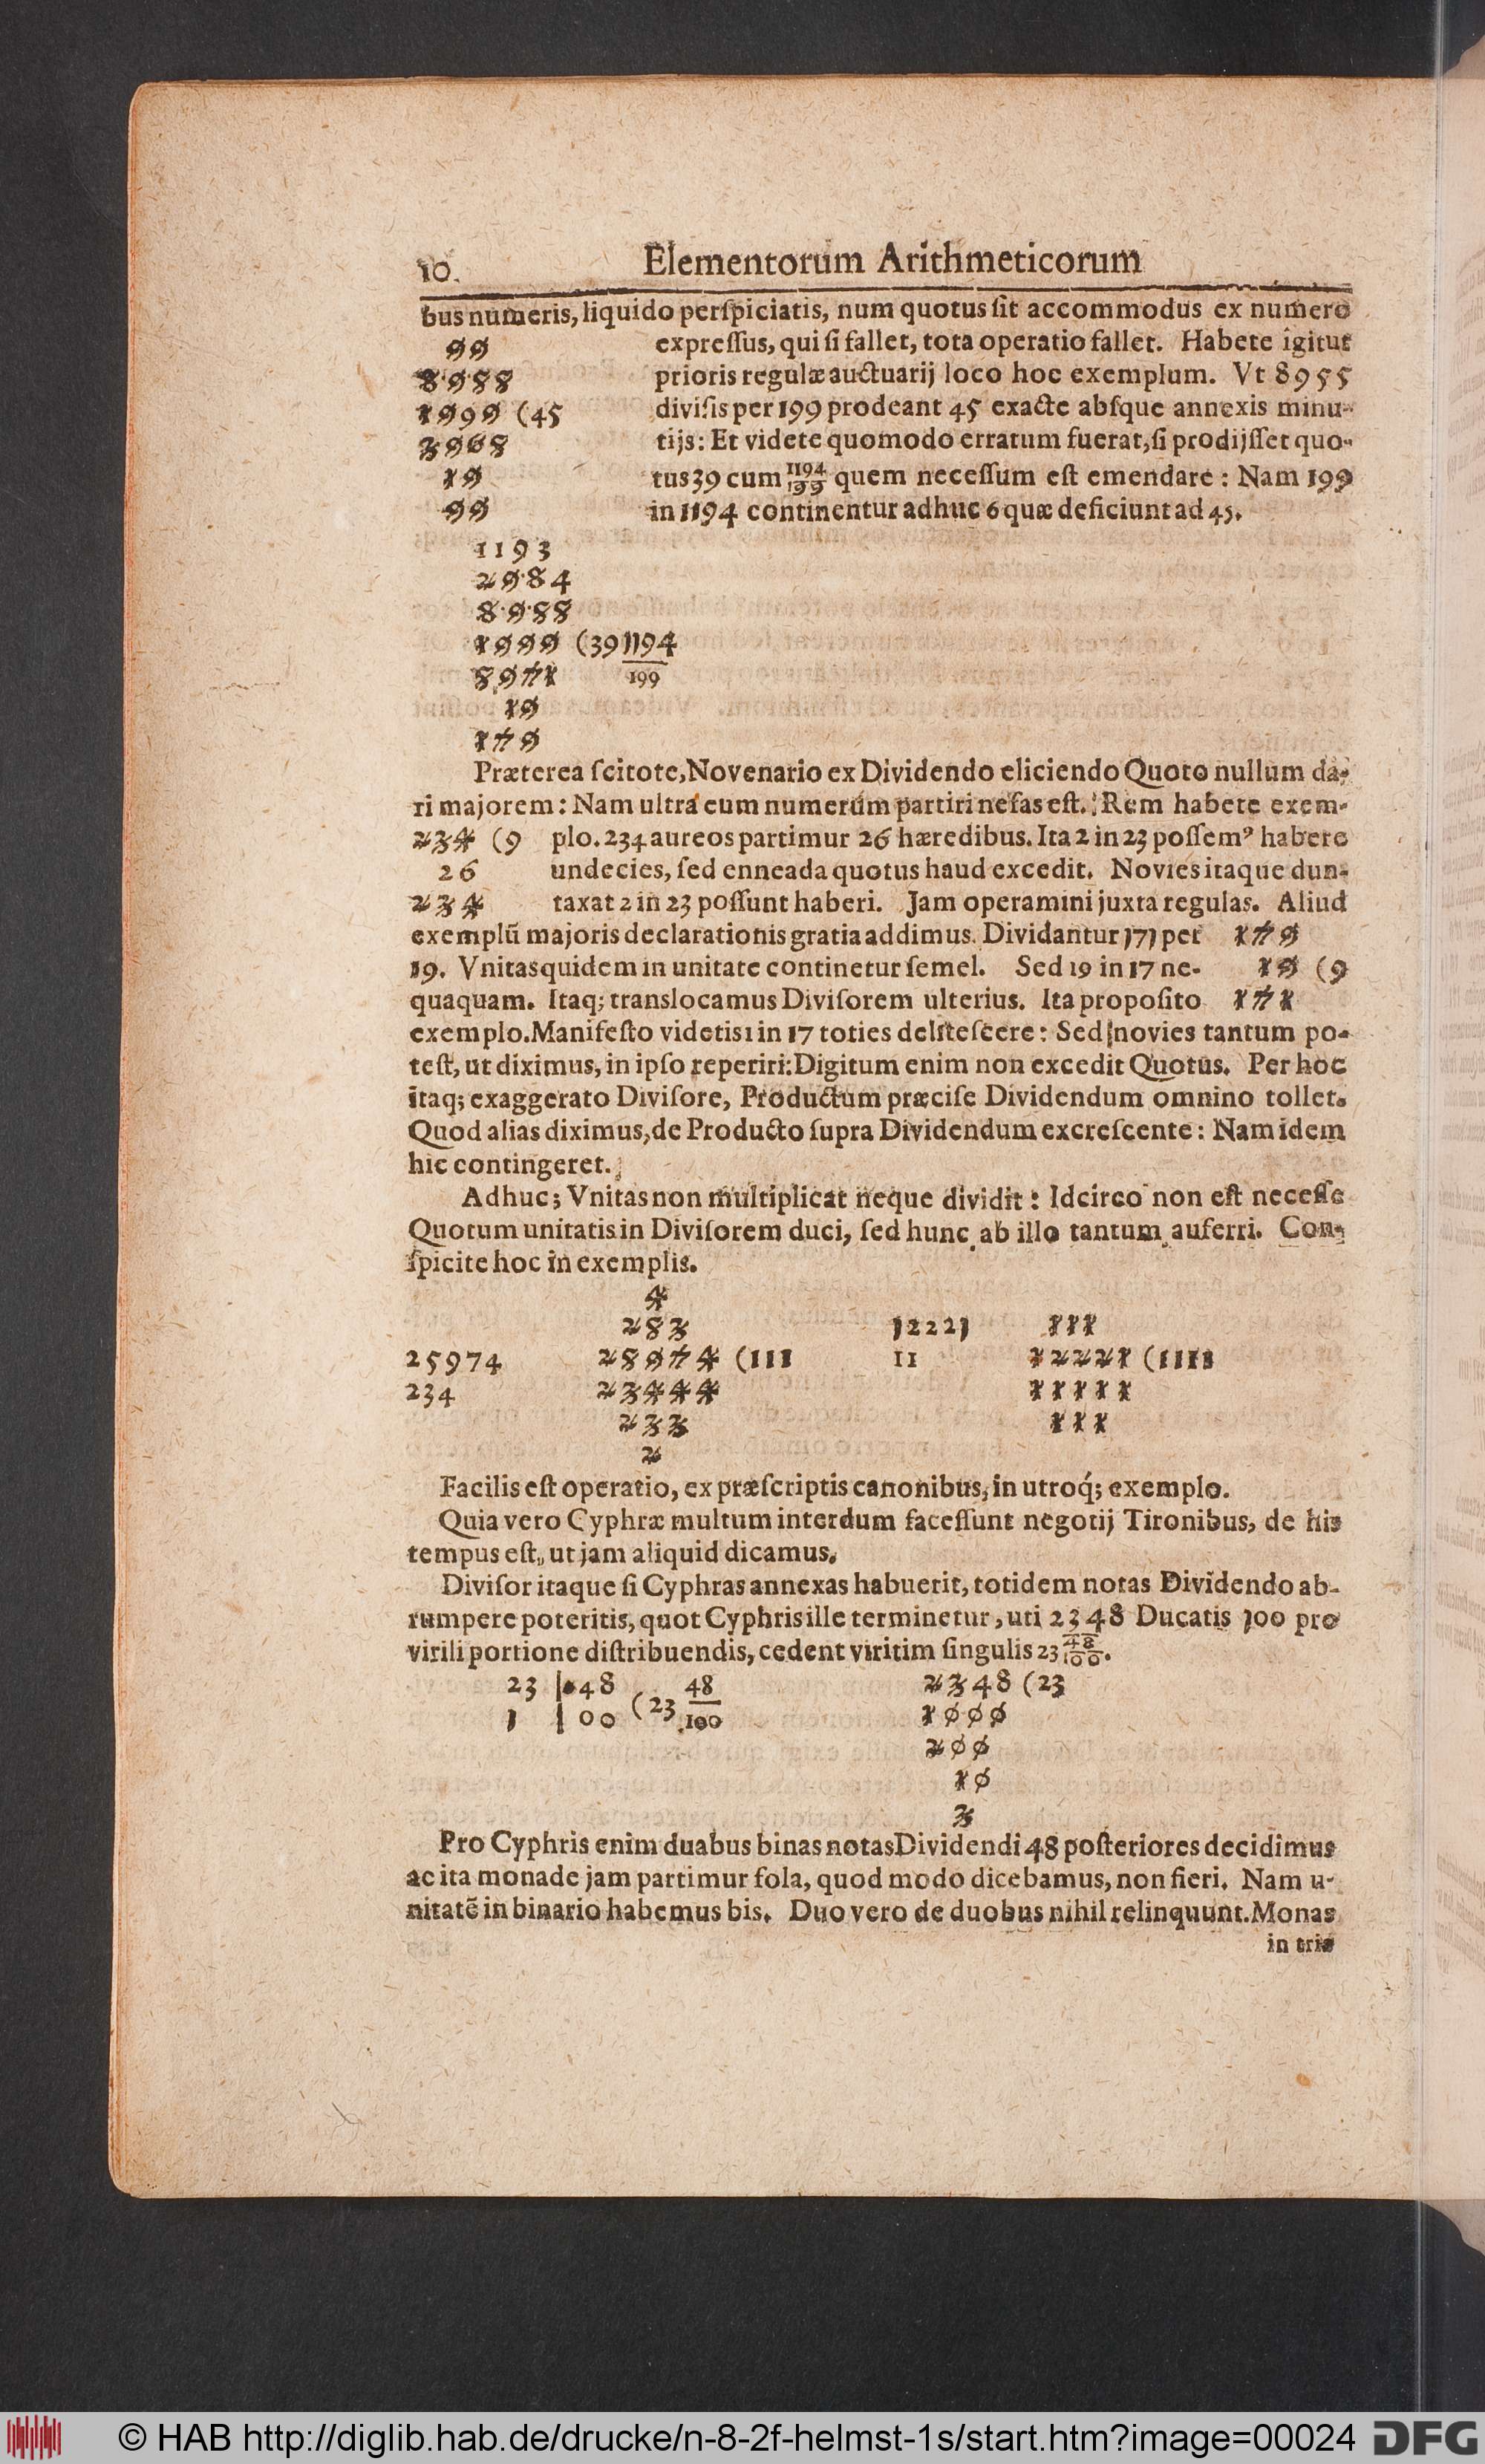 10. Elementorum Arithmeticorum
bus numeris, liquido perſpiciatis, num quotus ſit accommodus ex numero
99 expreſſus, qui ſi fallet, tota operatio fallet. Habete igitur
8988 prioris regulæ auctuarij loco hoc exemplum. Vt 8955
1999 (45 diviſis per 199 prodeant 45 exacte abſque annexis minu-
3968 tijs: Et videte quomodo erratum fuerat, ſi prodijſſet quo-
19 tus 39 cum 1194/199 quem neceſſum eſt emendare: Nam 199
99 in 1194 continentur adhuc 6 quæ deficiunt ad 45.
1193
2984
8988
1999 (39 1194/199
8971
19
179
Præterea ſcitote, Novenario ex Dividendo eliciendo Quoto nullum da-
ri majorem: Nam ultra eum numerum partiri nefas eſt. Rem habete exem-
234 (9 plo. 234 aureos partimur 26 hæredibus. Ita 2 in 23 poſſem⁹ habere
26 undecies, ſed enneada quotus haud excedit. Novies itaque dun-
234 taxat 2 in 23 poſſunt haberi. Jam operamini juxta regulas. Aliud
exemplū majoris declarationis gratia addimus. Dividantur 171 per 179
19. Vnitas quidem in unitate continetur ſemel. Sed 19 in 17 ne- 19 (9
quaquam. Itaq; translocamus Diviſorem ulterius. Ita propoſito 171
exemplo. Manifeſto videtis 1 in 17 toties deliteſcere: Sed novies tantum po-
teſt, ut diximus, in ipſo reperiri: Digitum enim non excedit Quotus. Per hoc
itaq; exaggerato Diviſore, Productum præciſe Dividendum omnino tollet.
Quod alias diximus, de Producto ſupra Dividendum excreſcente: Nam idem
hic contingeret.
Adhuc; Vnitas non multiplicat neque dividit: Idcirco non eſt neceſſe
Quotum unitatis in Diviſorem duci, ſed hunc ab illo tantum auferri. Con-
ſpicite hoc in exemplis.
4
283 12221 111
25974 28974 (111 11 12221 (1111
234 23444 11111
233 111
2
Facilis eſt operatio, ex præſcriptis canonibus, in utroq́; exemplo.
Quia vero Cyphræ multum interdum faceſſunt negotij Tironibus, de his
tempus eſt, ut jam aliquid dicamus.
Diviſor itaque ſi Cyphras annexas habuerit, totidem notas Dividendo ab-
rumpere poteritis, quot Cyphris ille terminetur, uti 2348 Ducatis 100 pro
virili portione diſtribuendis, cedent viritim ſingulis 23 48/100.
23 | 48 (23 48/100 2348 (23
1 | 00 1000
200
10
3
Pro Cyphris enim duabus binas notas Dividendi 48 poſteriores decidimus
ac ita monade jam partimur ſola, quod modo dicebamus, non fieri. Nam u-
nitatē in binario habemus bis. Duo vero de duobus nihil relinquunt. Monas
in tria
© HAB http://diglib.hab.de/drucke/n-8-2f-helmst-1s/start.htm?image=00024 DFG